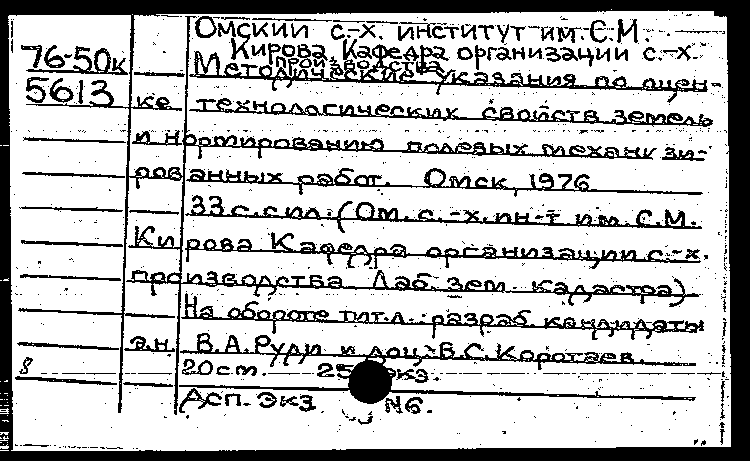 Омский с.-х. институт им. С.М.
76-50к Кирова. Кафедра организации с.-х.
производства
Методические указания по оцен-
5613 ке технологических свойств земель
и нормированию полевых механизи-
рованных работ. Омск, 1976
33 с. с ил. (Ом. с.-х. ин-т им. С.М.
Кирова Кафедра организации с.-х.
производства Лаб. зем. кадастра)
На обороте тит.л.: разраб. кандидаты
э.н. В.А.Руди и доц. В.С.Коротаев.
8 20 см. экз.
Асп. Экз N6.